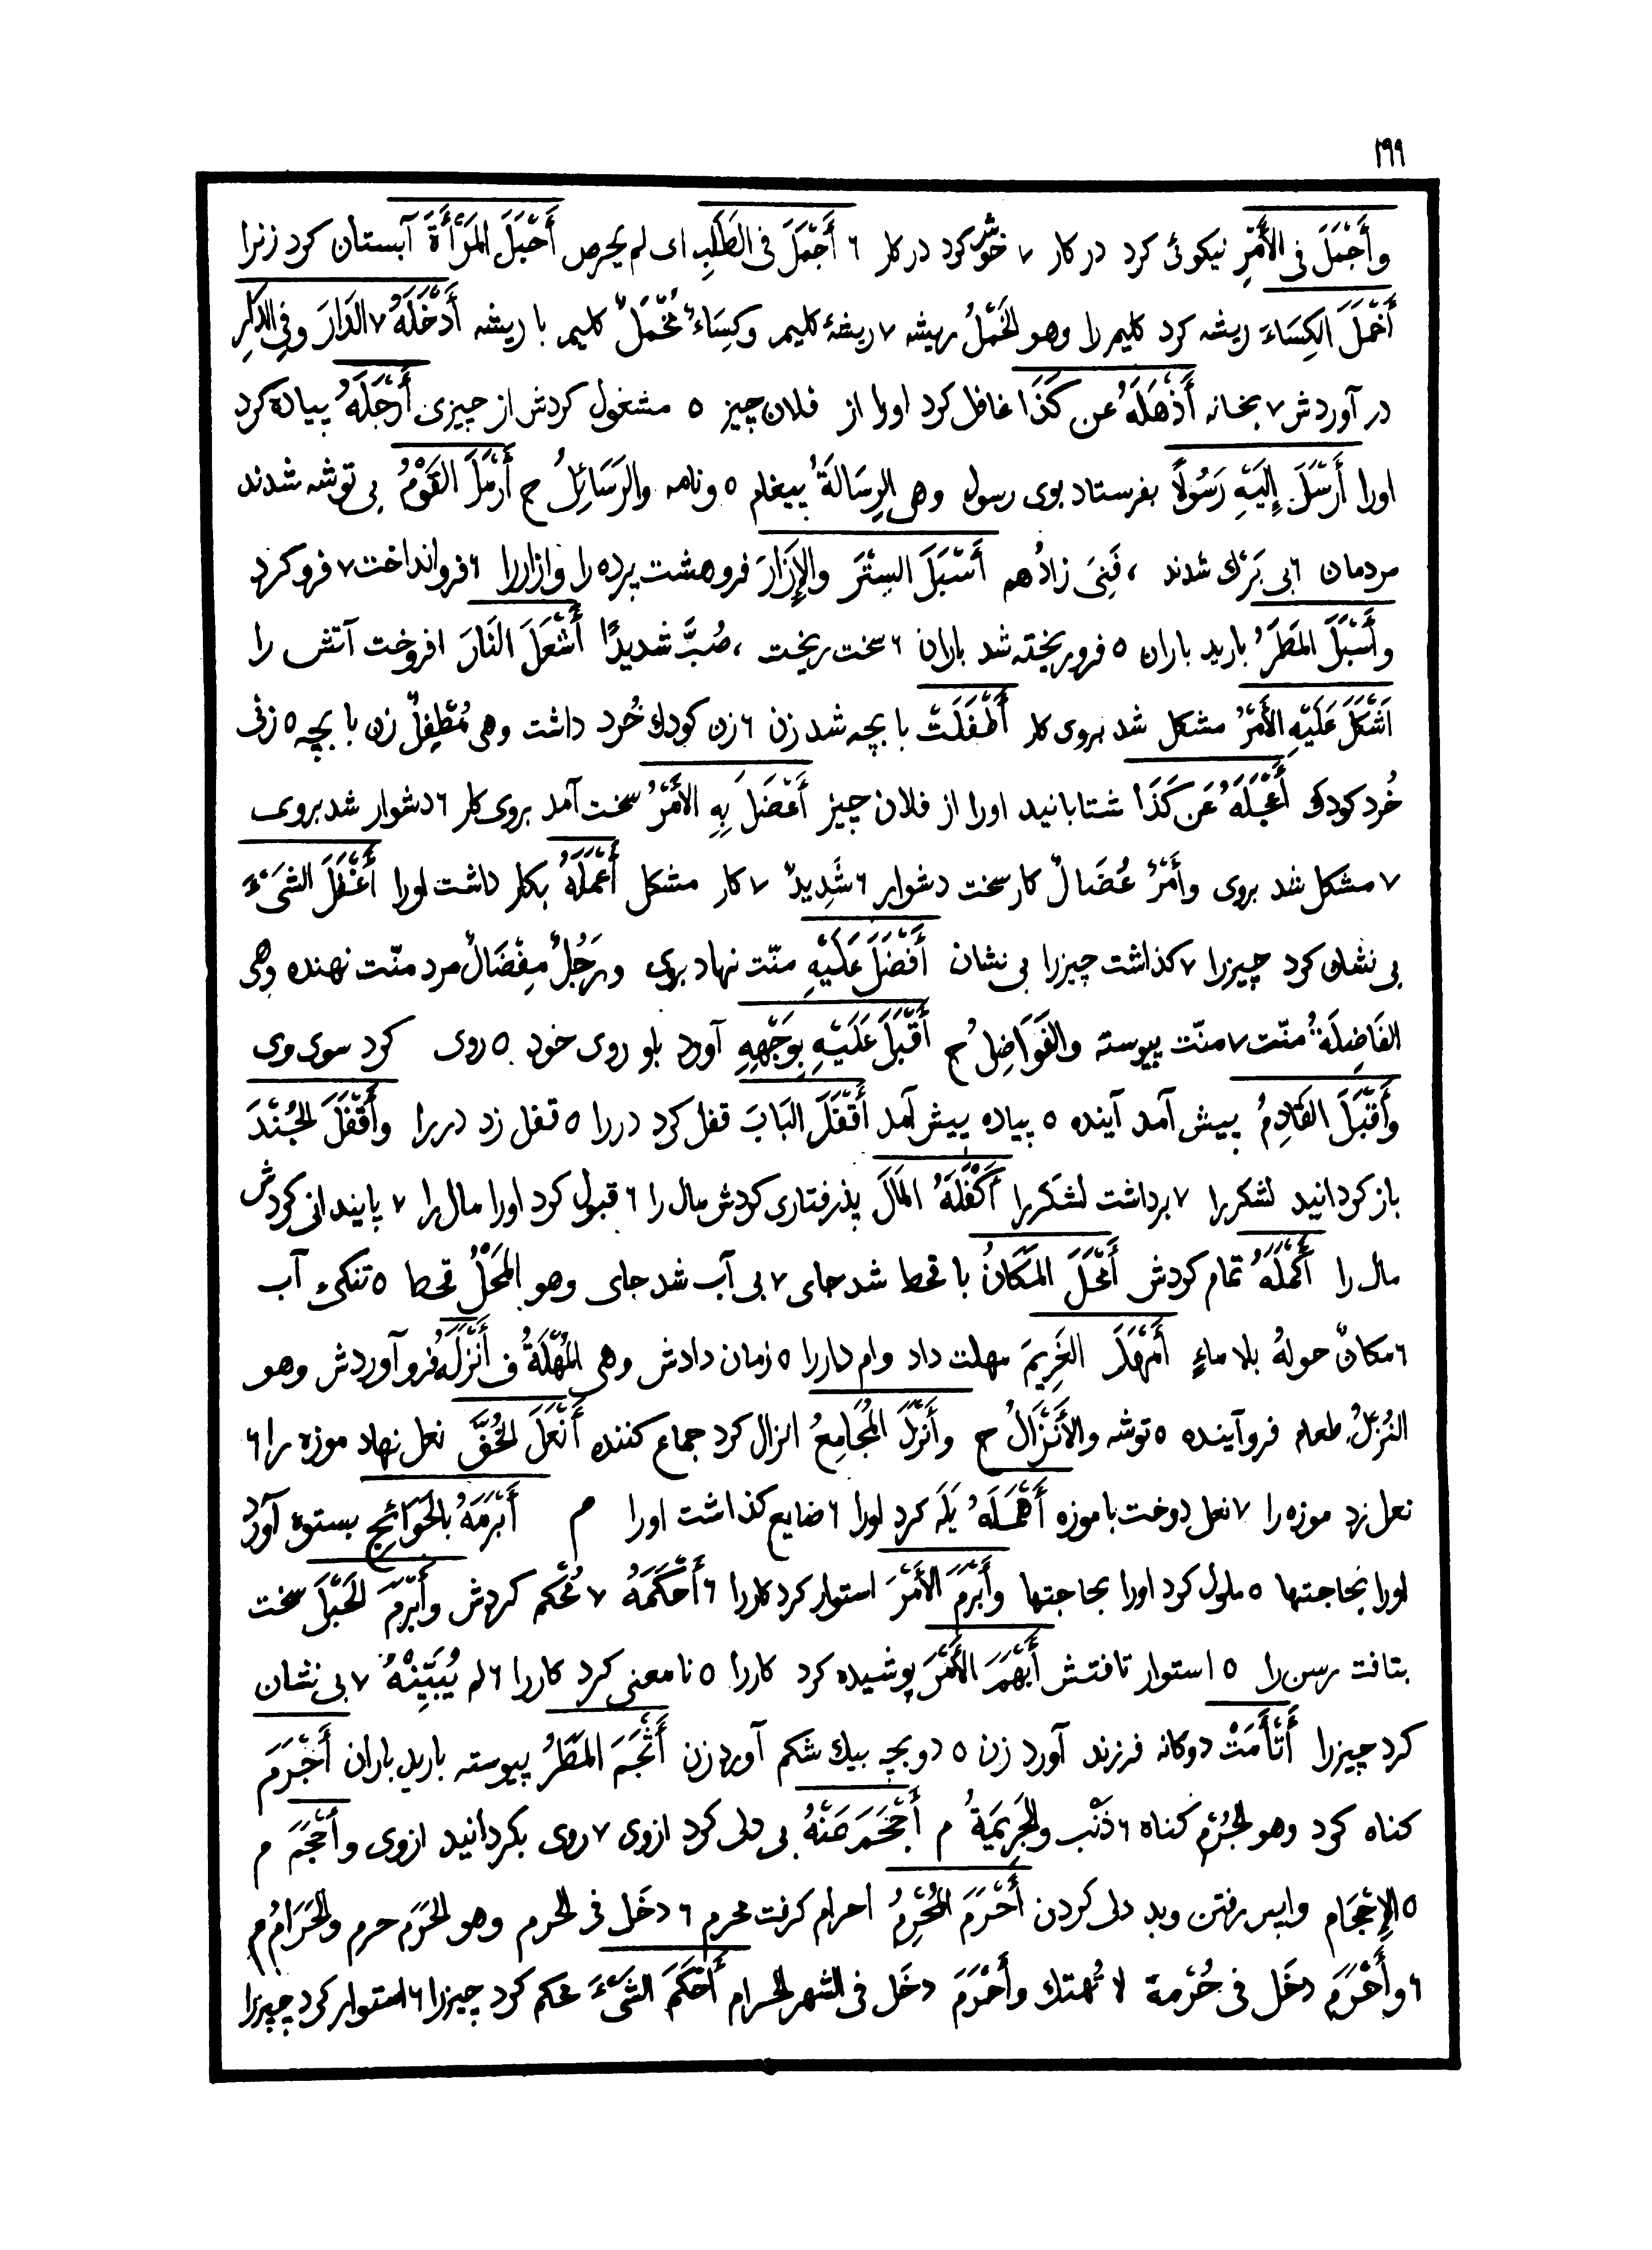 ۲۹۹
وأَجْمَلَ فی الأَمْرِ نیکوئی کرد در کار ۷ خوش کرد در کار ۶ أَجْمَلَ فی الطَلَبِ ای لم یحرص أَحْبَلَ المَرْأَةَ آبستان کرد زنرا
أَخْمَلَ الکِسَاءَ ریشه کرد کلیم را وهو الخَمْلُ ریشه ۷ ریشۀ کلیم وکِسَاءٌ مُخْمَلٌ کلیم با ریشه أَدْخَلَهُ ۷ الدَارَ وفِی الدَارِ
در آوردش ۷ بخانه أَذْهَلَهُ عن کَذَا غافل کرد اورا از فلان چیز ۵ مشغول کردش از چیزی أَرْجَلَهُ پیاده کرد
اورا أَرْسَلَ إِلَیْهِ رَسُولًا بفرستاد بوی رسول وهی الرِسَالَةُ پیغام ۵ ونامه والرَسَائِلُ ح أَرْمَلَ القَوْمُ بی توشه شدند
مردمان ۶ بی بَرْك شدند ، فَنِیَ زادُهم أَسْبَلَ السِتْرَ والإِزَارَ فروهشت پرده را وازاررا ۶ فروانداخت ۷ فروکرد
وأَسْبَلَ المَطَرُ بارید باران ۵ فروریخته شد باران ۶ سخت ریخت ، صُبَّ شدیدًا أَشْعَلَ النَارَ افروخت آتش را
أَشْکَلَ عَلَیْهِ الأَمْرُ مشکل شد بروی کار أَطْفَلَتْ با بچه شد زن ۶ زن کودك خُرد داشت وهی مُطْفِلٌ زن با بچه ۵ زنی
خُرد کودك أَعْجَلَهُ عَن کَذَا شتابانید اورا از فلان چیز أَعْضَلَ بِهِ الأَمْرُ سخت آمد بروی کار ۶ دشوار شد بروی
۷ مشکل شد بروی وأَمْرٌ عُضَالٌ کار سخت دشوار ۶ شَدِیدٌ ۷ کار مشکل أَعْمَلَهُ بکار داشت اورا أَغْفَلَ الشَیْءَ
بی نشان کرد چیزرا ۷ کذاشت چیزرا بی نشان أَفْضَلَ عَلَیْهِ منّت نهاد بروی ورَجُلٌ مِفْضَالٌ مرد منّت نهنده وهی
الفَاضِلَةُ منّت ۷ منّت پیوسته والفَوَاضِلُ ح أَقْبَلَ عَلَیْهِ بِوَجْهِهِ آورد بلو روی خود ۵ روی کرد سوی وی
وأَقْبَلَ القَادِمُ پیش آمد آینده ۵ پیاده پیش آمد أَقْفَلَ البَابَ قفل کرد دررا ۵ قفل زد دررا وأَقْفَلَ الجُنْدَ
باز کردانید لشکررا ۷ برداشت لشکررا أَکْفَلَهُ المَالَ پذرفتاری کردش مال را ۶ قبول کرد اورا مال را ۷ پایندانی کردش
مال را أَکْمَلَهُ تمام کردش أَمْحَلَ المَکَانُ با قحط شد جای ۷ بی آب شد جای وهو المَحْلُ قحط ۵ تنکیء آب
۶ مکانٌ حولهُ بلا ماءٍ أَمْهَلَ الغَرِیمَ مهلت داد وام داررا ۵ زمان دادش وهی المُهْلَةُ ف أَنْزَلَهُ فروآوردش وهو
النُزُلُ طعام فروآینده ۵ توشه والأَنْزَالُ ح وأَنْزَلَ المُجَامِعُ انزال کرد جماع کننده أَنْعَلَ الخُفَّ نعل نهاد موزه را ۶
نعل زد موزه را ۷ نعل دوخت با موزه أَهْمَلَهُ یَلَه کرد اورا ۶ ضایع کذاشت اورا م أَبْرَمَهُ بالحَوَائِجِ بستوه آورد
اورا بحاجتها ۵ ملول کرد اورا بحاجتها وأَبْرَمَ الأَمْرَ استوار کرد کاررا ۶ أَحْکَمَهُ ۷ مُحْکم کردش وأَبْرَمَ الحَبْلَ سخت
بتافت رسن را ۵ استوار تافتش أَبْهَمَ الأَمْرَ پوشیده کرد کاررا ۵ نامعنی کرد کاررا ۶ لم یُبَیِّنْهُ ۷ بی نشان
کرد چیزرا أَتْأَمَتْ دوکانه فرزند آورد زن ۵ دو بچه بیك شکم آورد زن أَثْجَمَ المَطَرُ پیوسته بارید باران أَجْرَمَ
کناه کرد وهو الجُرْم کناه ۶ ذَنْب والجَرِیمَةُ م أَجْحَمَ عَنْهُ بی دلی کرد ازوی ۷ روی بکردانید ازوی وأَحْجَمَ م
۵ الإِحْجَام واپس رفتن وبد دلی کردن أَحْرَمَ المُحْرِمُ احرام کرفت محرم ۶ دخَل فی الحرم وهو الحَرَم حرم والحَرَامُ م
۶ وأَحْرَمَ دخَل فی حُرْمة لا تُهتك وأَحْرَمَ دخَل فی الشهر الحرام أَحْکَمَ الشَیْءَ محکم کرد چیزرا ۶ استوار کرد چیزرا